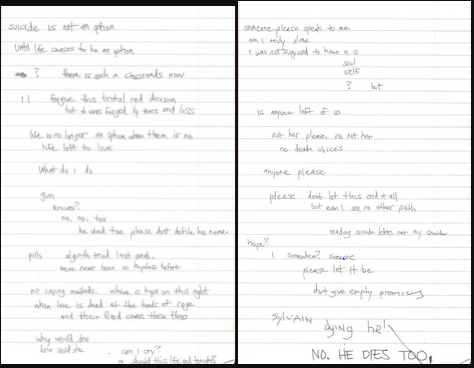 suicide is not an option
until life ceases to be an option
? there is such a now
forgive this brutal red decision
but it was forged by tears and loss
life is no longer an option when there is no
life left to live
What do I do
gun
knives?
no, no, too
he died too please dont defile his name.
pills tried last week.
never been so hopeless before
no coping methods. where is hope on this night
when love is dead at the hands of rage
and their blood covers these floors
why would she
how could she
can I cry?
should this life end tonight?
someone please speak to me
am I truly alone
I was not supposed to have a s
soul
self
? let
is anyone left of us
not her please, no not her
no death voices
anyone please
please dont let this end it all
but even I see no other path
reading suicide letters over my shoulder
hope?
I somewhen? someone
please let it be.
dont give empty promises
SYLVAIN dying he!
NO. HE DIES TOO.